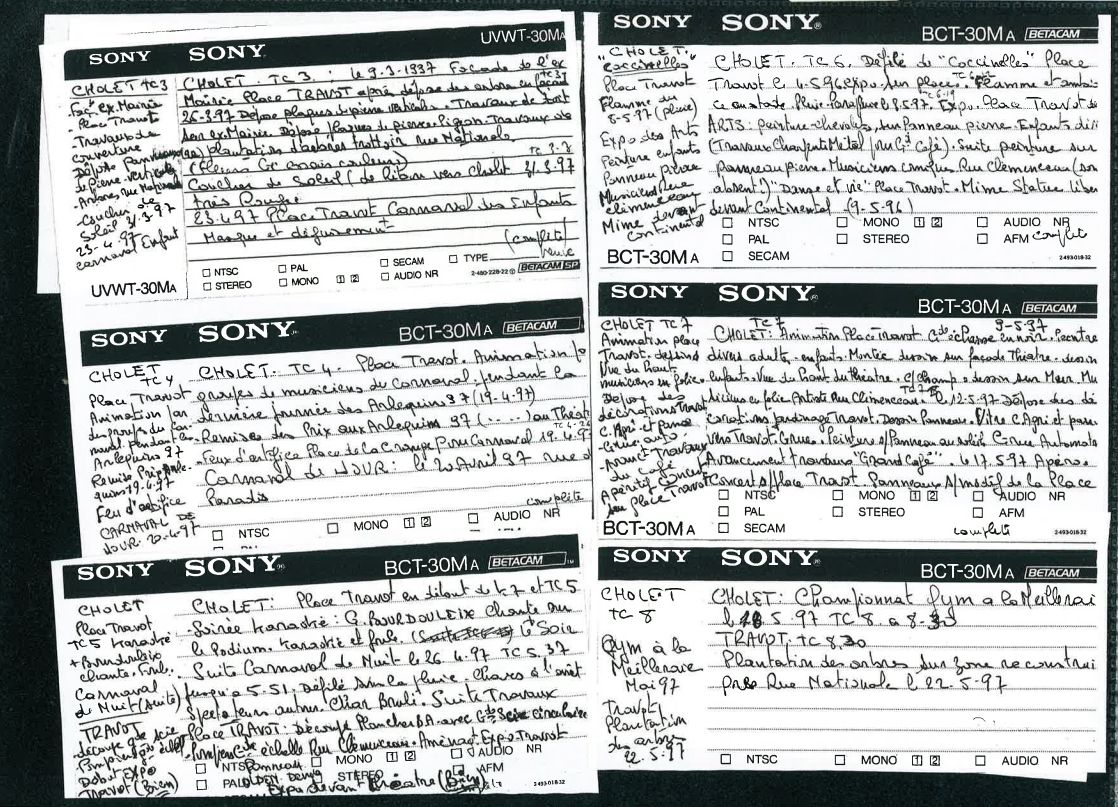 SONY SONY UVWT-30MA
CHOLET TC3
Façe ex Mairie
- Place Travot
- Travaux de
couverture
Dépose Panneaux
de Pierre verticales
- Arbres rue Nationale
- Coucher de
Soleil 31-3-97
23-4-97
carnaval Enfant
CHOLET. TC 3. : le 9-3-1997 Façade de l'ex
Mairie Place TRAVOT après dépose des arbres en
26-3-97 Dépose plaques pierre verticales. Travaux de
son ex Mairie. Dépose plaques de pierre. Pignon. Travaux
Plantation d'arbres trottoir rue Nationale
Coucher de Soleil ( vers Cholet 31-3-97
très Rouge
23-4-97 Place Travot Carnaval des Enfants
Masque et déguisement
(complète)
NTSC PAL SECAM TYPE
STEREO MONO 1 2 AUDIO NR 2-480-228-22 BETACAM SP
UVWT-30MA
SONY SONY BCT-30MA BETACAM
CHOLET
TC4
Place Travot
Animation par
des groupes du car-
naval pendant les
Arlequins 97
Remise Prix Arle-
quins 19-4-97
Feu d'artifice
CARNAVAL DE
JOUR. 20-4-97
CHOLET. TC 4. Place Travot. Animation
groupes de musiciens du Carnaval. pendant la
dernière journée des Arlequins 97 (19-4-97)
- Remises des Prix aux Arlequins 97 (- - -) au Théât
- Feux d'artifice Place de la Grange Pour Carnaval 19-4-97
Carnaval de JOUR: le 20 Avril 97 rue d
Paradis
complète
NTSC MONO 1 2 AUDIO NR
SONY SONY BCT-30MA BETACAM
CHOLET
Place Travot
TC5 Karaoké
+ Bourdouleix
chante. Foule.
Carnaval
de Nuit (suite)
TRAVOT
Debut Expo
Travot (Bien)
CHOLET: Place Travot en TC5
- Soirée Karaoké: G. BOURDOULEIX chante sur
le Podium. Karaoké et foule. le Soir
Suite Carnaval de Nuit le 26-4-97 TC 5.37
jusqu'a 5-51. Défilé sous la pluie. Chars à l'arrêt
spectateurs autour. Char Brulé. Suite Travaux
Place TRAVOT: Découpe Planches BA. avec Gde Scie circulaire
échelle Rue Clémenceau. Aménagt Expo Travot
NTSC MONO 1 2 AUDIO NR
PAL STEREO AFM
Expo devant Théatre (Bien)
2-493-018-32
SONY SONY BCT-30MA BETACAM
"CHOLET.
Coccinelles"
Place Travot
Flamme du
8-5-97 (pluie)
Expo des Arts
Peinture enfants
Panneau Pierre
Musiciens Rue
clémenceau
Mime devant
Continental
CHOLET. TC 6. Défilé de "Coccinelles" Place
Travot le 4-5-96 expo. sur place. Flamme et
Pluie. Parapluie 8.5.97. Expo. Place Travot de
ARTS: peinture chevalets, sur Panneau pierre. Enfants
(Travaux Charpente Métal pour Gd Café). Suite peinture sur
Panneau pierre. Musiciens comiques. Rue Clémenceau (son
absent)" Danse et vie" Place Travot. Mime Statue Liber
devant Continental (9-5-96)
NTSC MONO 1 2 AUDIO NR
PAL STEREO AFM complète
SECAM
BCT-30MA 2-493-018-32
SONY SONY BCT-30MA BETACAM
CHOLET TC7
Animation place
Travot. dessins
Vue du haut
musiciens en folie
Dépose des
décorations Travot
C. Agri et pano
Grue auto.
- Avanct Travaux
du Café
Apéritif Concert
sur place Travot
TC7 9-5-97
CHOLET: Animation Place Travot. Gde échasse en noir. Peintre
divers adulte - enfants. Montée dessin sur façade Théatre. dessin
enfants. Vue du haut du théatre. C/champ. dessin sur Mair. Mu
siciens en folie. Artiste Rue Clémenceau. le 12-5-97 Dépose des dé
corations jardinage Travot. Dessin Panneaux. Vitre C Agri et pano
vers Travot. Grues. Peinture s/Panneau au soleil. Grue Automate
Avancement travaux "Grand Café". le 17-5-97 Apéro.
Concert s/place Travot. Panneaux s/modif de la Place
NTSC MONO 1 2 AUDIO NR
PAL STEREO AFM
SECAM complète
BCT-30MA 2-493-018-32
SONY SONY BCT-30MA BETACAM
CHOLET
TC 8
Gym à la
Meilleraie
Mai 97
Travot
Plantation
des arbres
22-5-97
CHOLET: Championnat Gym a la Meillerai
le 18 5-97 TC 8. a 8-30
TRAVOT: TC 8.30
Plantation des arbres sur zone reconstrui
près Rue Nationale le 22-5-97
NTSC MONO 1 2 AUDIO NR